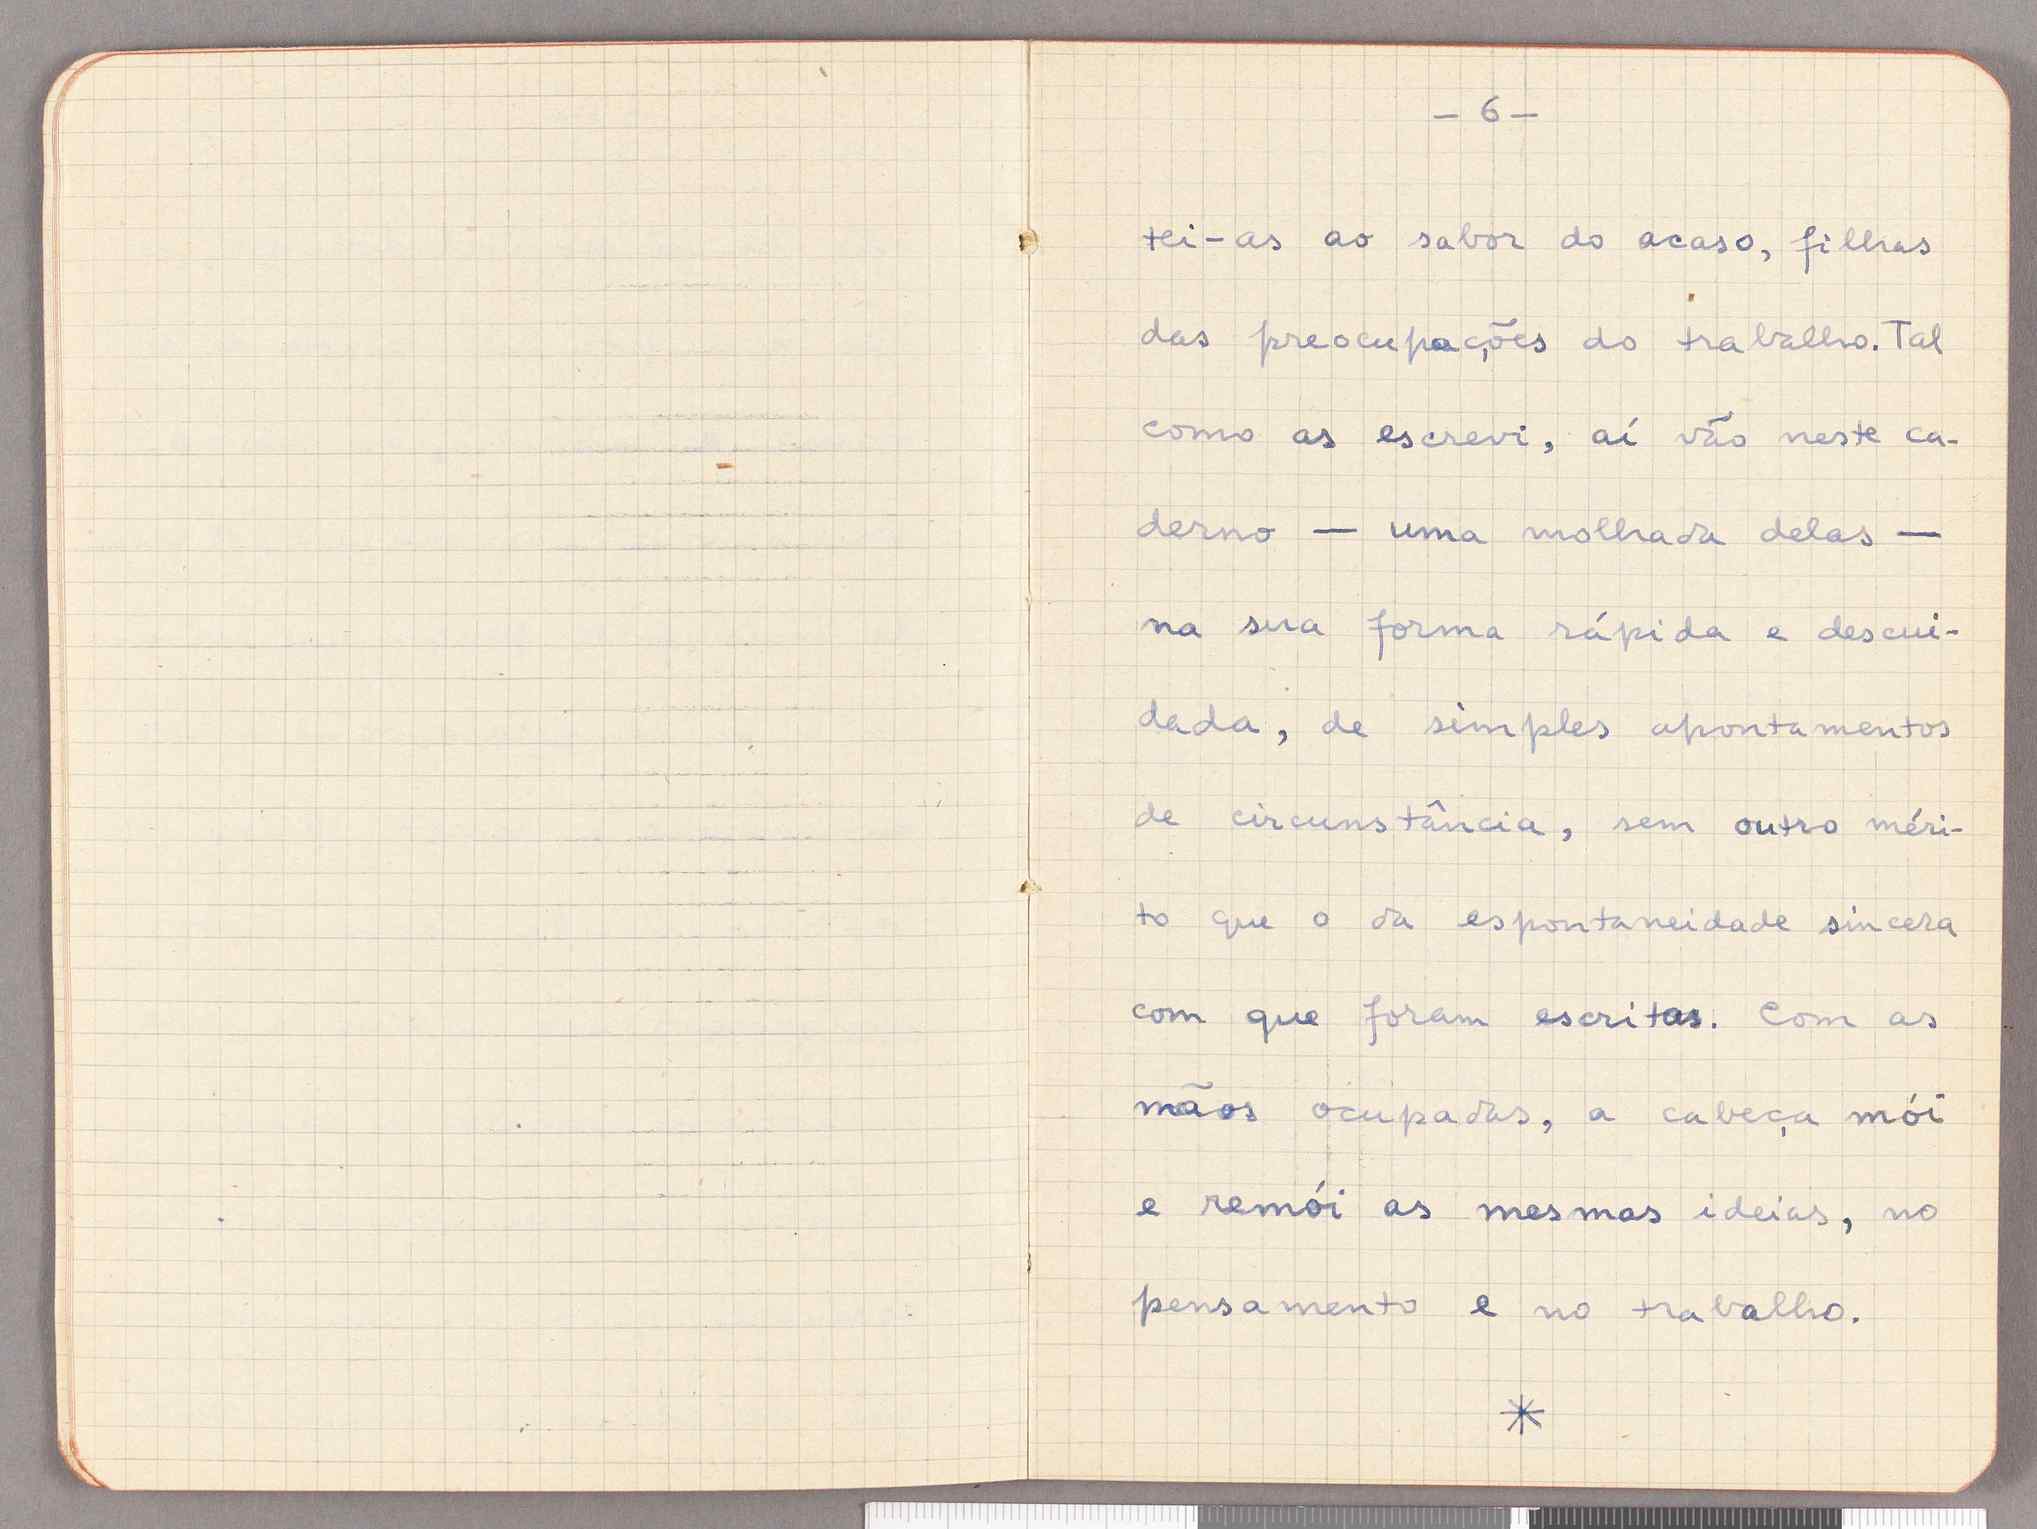 – 6 –
tei-as ao sabor do acaso, filhas
das preocupações do trabalho. Tal
como as escrevi, aí vão neste ca-
derno — uma molhada delas —
na sua forma rápida e descui-
dada, de simples apontamentos
de circunstância, sem outro méri-
to que o da espontaneidade sincera
com que foram escritas. Com as
mãos ocupadas, a cabeça mói
e remói as mesmas ideias, no
pensamento e no trabalho.
*